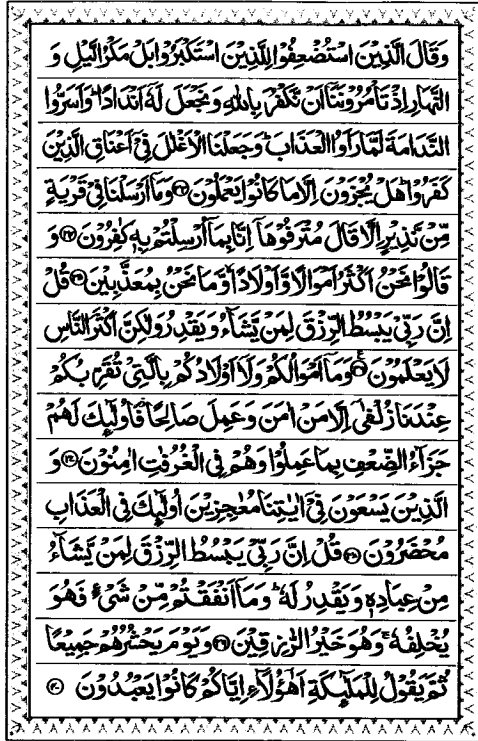 وَقَالَ الَّذِيْنَ اسْتُضْعِفُوْا لِلَّذِيْنَ اسْتَكْبَرُوْا بَلْ مَكْرُ الَّيْلِ وَ
النَّهَارِ اِذْ تَاْمُرُوْنَنَاۤ اَنْ نَّكْفُرَ بِاللّٰهِ وَنَجْعَلَ لَهٗۤ اَنْدَادًا ؕ وَاَسَرُّوا
النَّدَامَةَ لَمَّا رَاَوُا الْعَذَابَ ؕ وَجَعَلْنَا الْاَغْلٰلَ فِيْۤ اَعْنَاقِ الَّذِيْنَ
كَفَرُوْا ؕ هَلْ يُجْزَوْنَ اِلَّا مَا كَانُوْا يَعْمَلُوْنَ ﴿۳۳﴾ وَمَاۤ اَرْسَلْنَا فِيْ قَرْيَةٍ
مِّنْ نَّذِيْرٍ اِلَّا قَالَ مُتْرَفُوْهَاۤ اِنَّا بِمَاۤ اُرْسِلْتُمْ بِهٖ كٰفِرُوْنَ ﴿۳۴﴾ وَ
قَالُوْا نَحْنُ اَكْثَرُ اَمْوَالًا وَّاَوْلَادًا وَّمَا نَحْنُ بِمُعَذَّبِيْنَ ﴿۳۵﴾ قُلْ
اِنَّ رَبِّيْ يَبْسُطُ الرِّزْقَ لِمَنْ يَّشَآءُ وَيَقْدِرُ وَلٰكِنَّ اَكْثَرَ النَّاسِ
لَا يَعْلَمُوْنَ ﴿۳۶﴾ وَمَاۤ اَمْوَالُكُمْ وَلَاۤ اَوْلَادُكُمْ بِالَّتِيْ تُقَرِّبُكُمْ
عِنْدَنَا زُلْفٰۤى اِلَّا مَنْ اٰمَنَ وَعَمِلَ صَالِحًا ؗ فَاُولٰٓئِكَ لَهُمْ
جَزَآءُ الضِّعْفِ بِمَا عَمِلُوْا وَهُمْ فِي الْغُرُفٰتِ اٰمِنُوْنَ ﴿۳۷﴾ وَ
الَّذِيْنَ يَسْعَوْنَ فِيْۤ اٰيٰتِنَا مُعٰجِزِيْنَ اُولٰٓئِكَ فِي الْعَذَابِ
مُحْضَرُوْنَ ﴿۳۸﴾ قُلْ اِنَّ رَبِّيْ يَبْسُطُ الرِّزْقَ لِمَنْ يَّشَآءُ
مِنْ عِبَادِهٖ وَيَقْدِرُ لَهٗ ؕ وَمَاۤ اَنْفَقْتُمْ مِّنْ شَيْءٍ فَهُوَ
يُخْلِفُهٗ ۚ وَهُوَ خَيْرُ الرّٰزِقِيْنَ ﴿۳۹﴾ وَيَوْمَ يَحْشُرُهُمْ جَمِيْعًا
ثُمَّ يَقُوْلُ لِلْمَلٰٓئِكَةِ اَهٰۤؤُلَآءِ اِيَّاكُمْ كَانُوْا يَعْبُدُوْنَ ﴿۴۰﴾